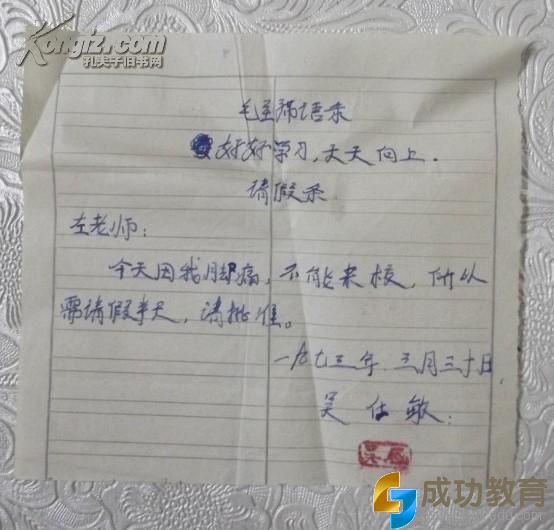 Kongfz.com
孔夫子旧书网
毛主席语录
好好学习,天天向上.
请假条
左老师:
今天因我脚痛,不能来校,所以
需请假半天,请批准。
一九七三年三月三十日
吴仕敏
成功教育